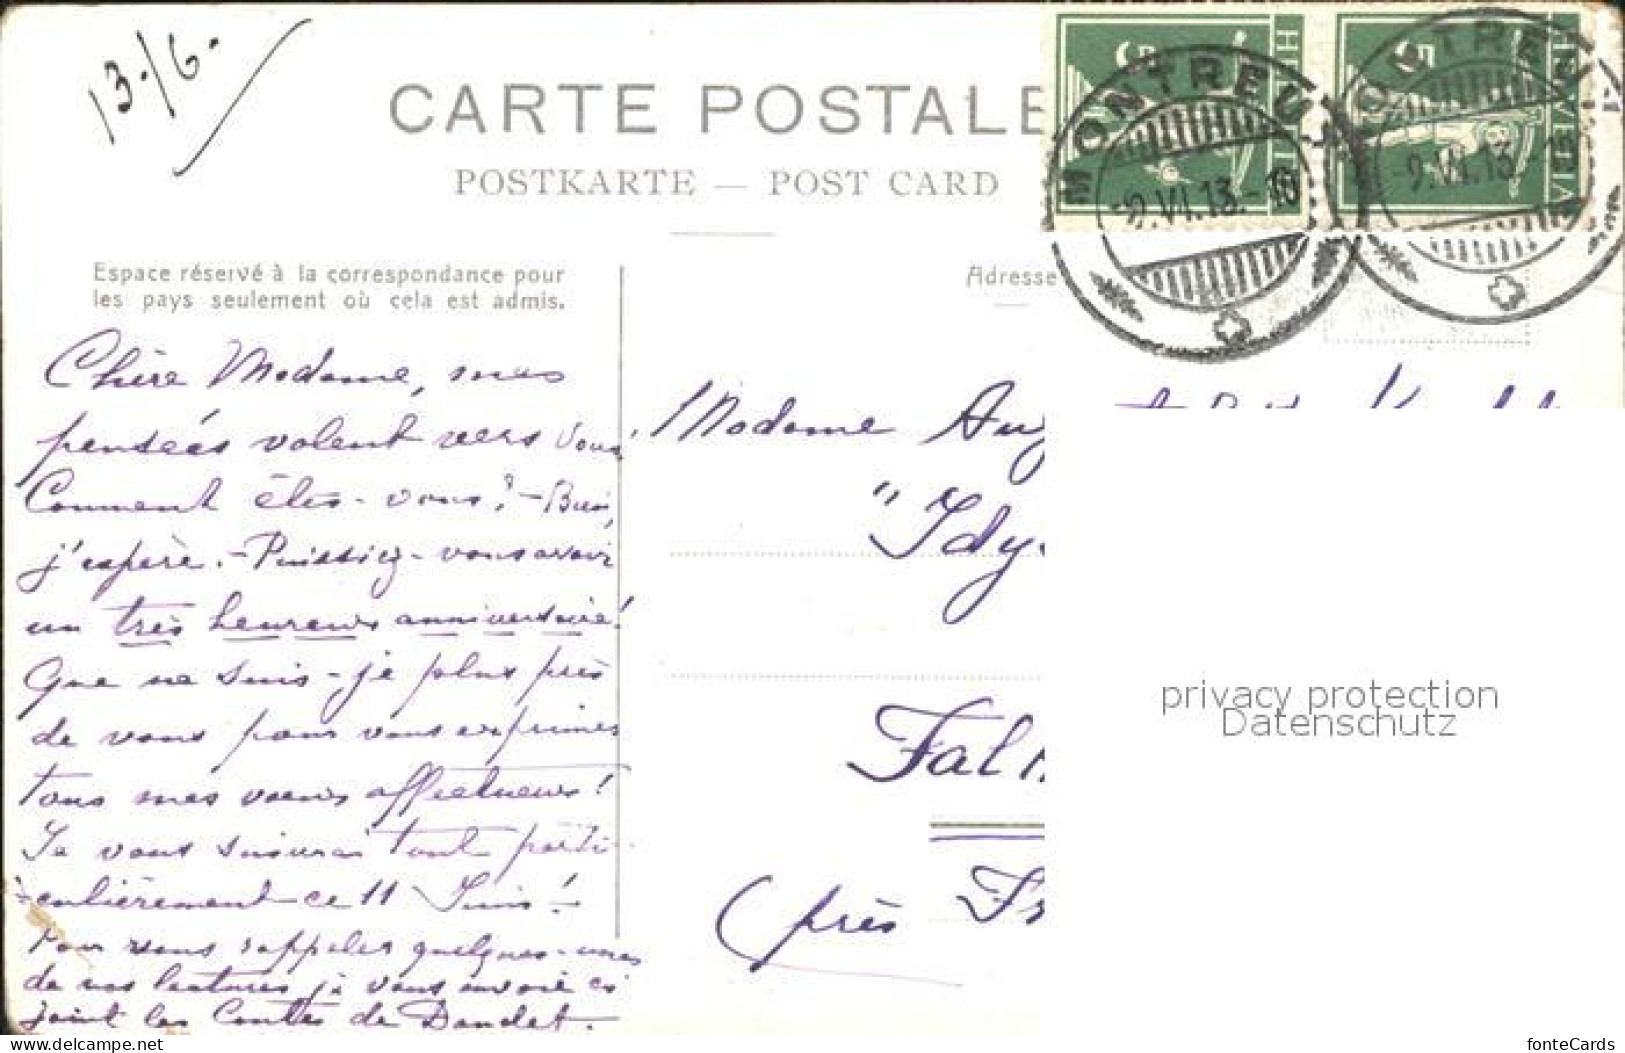 13./6.
CARTE POSTALE
POSTKARTE — POST CARD
HELVETIA
HELVETIA
MONTREUX
-9.VI.13.-10
MONTREUX
-9.VI.13.-1
Espace réservé à la correspondance pour
les pays seulement où cela est admis.
Adresse
Chère Madame, mes
pensées volent vers vous!
Comment êtes-vous? - Bien,
j'espère. - Puissiez-vous avoir
un très heureux anniversaire!
Que ne suis-je plus près
de vous pour vous exprimer
tous mes voeux affectueux!
Je vous suivrai tout parti-
-culièrement ce 11 Juin! -
Pour vous rappeler quelques-unes
de nos lectures je vous envoie ci
joint les Contes de Daudet.
Madame Aug
"Idy
Fal
(près Fr
privacy protection
Datenschutz
www.delcampe.net
fonteCards